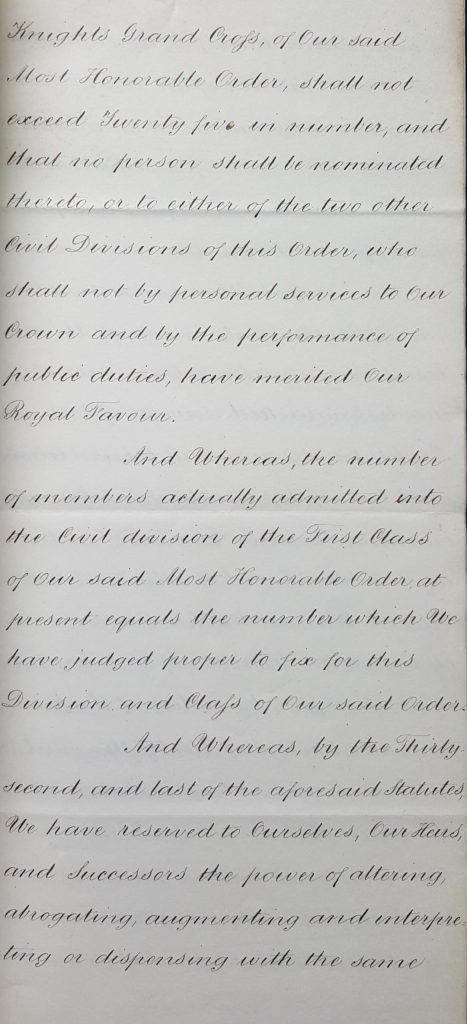 Knights Grand Croſs, of Our said
Most Honorable Order, shall not
exceed Twenty five in number, and
that no person shall be nominated
thereto, or to either of the two other
Civil Divisions of this Order, who
shall not by personal services to Our
Crown and by the performance of
public duties, have merited Our
Royal Favour.
And Whereas, the number
of members actually admitted into
the Civil division of the First Class
of Our said Most Honorable Order, at
present equals the number which We
have judged proper to fix for this
Division and Claſs of Our said Order.
And Whereas, by the Thirty-
second, and last of the aforesaid Statutes,
We have reserved to Ourselves, Our Heirs,
and Successors the power of altering,
abrogating, augmenting and interpre-
ting or dispensing with the same